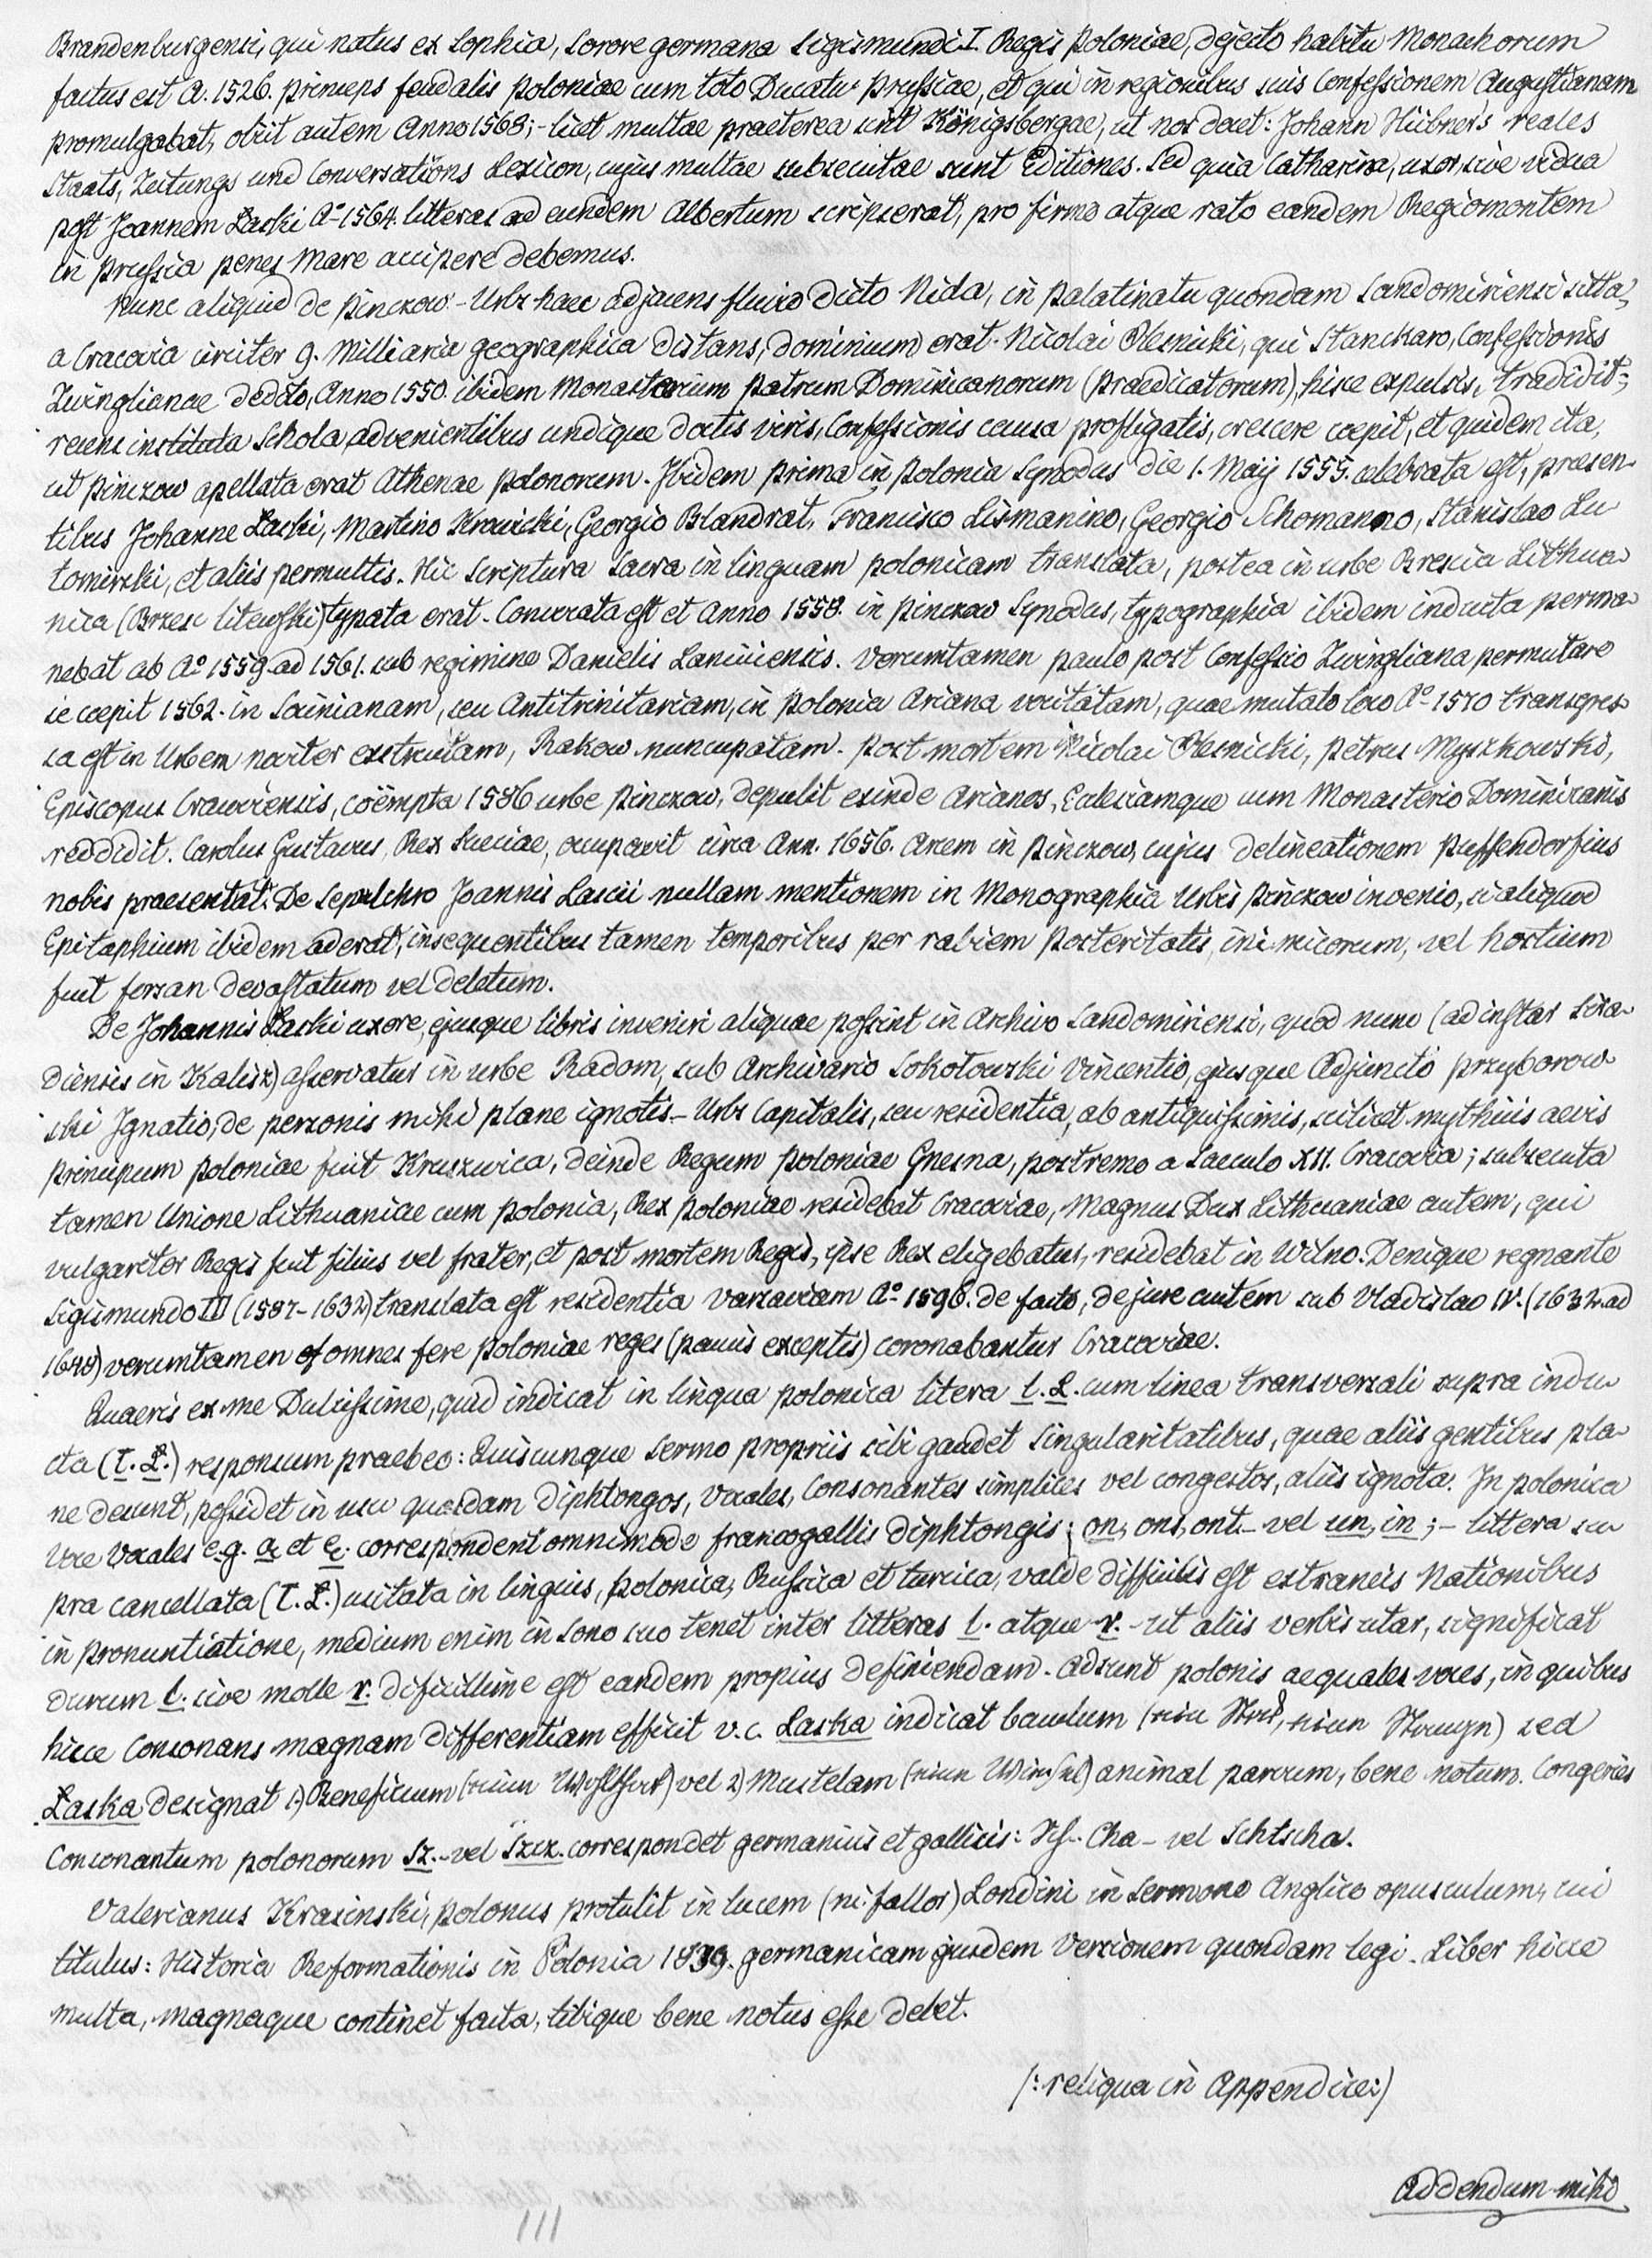 Brandenburgensi, qui natus ex Sophia, sorore germana Sigismundi I. Regis Poloniae, dejecto habitu Monachorum
factus est A. 1526. princeps feudalis Poloniae cum toto Ducatu Prussiae, et qui in regionibus suis Confessionem Augustianam
promulgabat, obiit autem Anno 1568; - licet multae praeterea sint Königsbergae, ut nos docet: Johann Hübner's reales
Staats, Zeitungs und Conversations Lexicon, cujus multae subsecutae sunt Editiones. Sed quia Catharina, uxor, sive vidua
post Joannem Łaski Aº 1564. litteras ad eundem Albertum scripserat, pro firmo atque rato eandem Regiomontem
in Prussia penes Mare accipere debemus.
Nunc aliquid de Pinczow - Urbs haec adjacens fluvio dicto Nida, in Palatinatu quondam Sandomiriensi sitta,
a Cracovia circiter 9. Milliaria geographica distans, dominium erat Nicolai Olesnicki, qui Stanckaro, Confessionis
Zwinglianae dedito, Anno 1550. ibidem Monasterium Patrum Dominicanorum (Praedicatorum), hisce expulsis, tradidit;
recens instituta Schola, advenientibus undique doctis viris, Confessionis causa profligatis, crescere coepit, et quidem ita,
ut Pinczow apellata erat Athenae Polonorum. Ibidem prima in Polonia Synodus die 1. Maij 1555. celebrata est, praesen-
tibus Johanne Łaski, Martino Krowicki, Georgio Blandrat, Francisco Lismanino, Georgio Schomanno, Stanislao Lu-
tomirski, et aliis permultis. Hic Scriptura Sacra in linguam polonicam translata, postea in urbe Brescia Lithua-
nica (Brzesc litewski) typata erat. Convocata est et Anno 1558. in Pinczow Synodus, typographia ibidem inducta perma-
nebat ab Aº 1559 ad 1561. sub regimine Danielis Lanciciensis. Verumtamen paulo post Confessio Zwingliana permutare
se coepit 1562. in Socinianam, seu Antitrinitariam, in Polonia Ariana vocitatam, quae mutato loco Aº 1570 transgres-
sa est in Urbem noviter exstructam, Rakow nuncupatam. Post mortem Nicolai Olesnicki, Petrus Myszkowski,
Episcopus Cracoviensis, coëmpta 1586 urbe Pinczow, depulit exinde Arianos, Ecclesiamque cum Monasterio Dominicanis
reddidit. Carolus Gustavus, Rex Sueciae, occupavit circa Ann. 1656. Arcem in Pinczow, cujus delineationem Puffendorfius
nobis praesentat. De Sepulchro Joannis Lascii nullam mentionem in Monographia Urbis Pinczow invenio, si aliquod
Epitaphium ibidem aderat, insequentibus tamen temporibus per rabiem posteritatis, inimicorum, vel hostium
fuit forsan devastatum vel deletum.
De Johannis Łaski uxore, ejusque libris inveniri aliquae possint in Archivo Sandomiriensi, quod nunc (ad instar Sira-
diensis in Kalisz) asservatur in urbe Radom, sub Archivario Sokołowski Vincentio, ejusque Adjuncto Przyborow-
ski Ignatio, de personis mihi plane ignotis - Urbs Capitalis, seu residentia, ab antiquissimis, scilicet mythicis aevis
Principum Poloniae fuit Kruszwica, deinde Regum Poloniae Gnesna, postremo a Saeculo XII. Cracovia; subsecuta
tamen Unione Lithuaniae cum Polonia, Rex Poloniae residebat Cracoviae, Magnus Dux Lithuaniae autem, qui
vulgariter Regis fuit filius vel frater, et post mortem Regis, ipse Rex eligebatur, residebat in Wilno. Denique regnante
Sigismundo III (1587-1632) translata est residentia Varsaviam Aº 1596. de facto, de jure autem sub Vladislao IV. (1632 ad
1648) verumtamen et omnes fere Poloniae reges (paucis exceptis) coronabantur Cracoviae.
Quaeris ex me Dulcissime, quid indicat in lingua polonica litera l. L. cum linea transversali supra indu-
cta (ł. Ł.) responsum praebeo: Quiscunque Sermo propriis sibi gaudet Singularitatibus, quae aliis gentibus pla-
ne desunt, possidet in usu quasdam diphtongos, Vocales, Consonantes simplices vel congestos, aliis ignota. In polonica
Voce Vocales e.g. ą et ę. correspondent omnimode francogallis diphtongis: on, ons, ont - vel un, in; - littera su-
pra cancellata (ł. Ł.) usitata in linguis, polonica, Russica et turcica, valde difficilis est extraneis Nationibus
in pronuntiatione, medium enim in sono suo tenet inter litteras l. atque r. - ut aliis verbis utar, significat
durum l. sive molle r. dificillime est eandem propius definiendam. Adsunt polonis aequales voces, in quibus
hicce Consonans magnam differentiam efficit v.c. Laska indicat baculum (einen Stock, einen) sed
Łaska designat 1) Beneficium (eine Wohlthat) vel 2) Mustelam (eine Wiesel) animal parvum, bene notum. Congeries
Consonantum polonorum Sz. - vel Szcz. correspondet germanicis et gallicis: Sch- Cha - vel Schtscha.
Valerianus Krasinski, polonus protulit in lucem (ni fallor) Londini in Sermone Anglico opusculum, cui
titulus: Historia Reformationis in Polonia 1839. germanicam ejusdem Versionem quondam legi. Liber hicce
multa, magnaque continet facta, tibique bene notus esse debet.
(: reliqua in Appendice :)
Addendum mihi